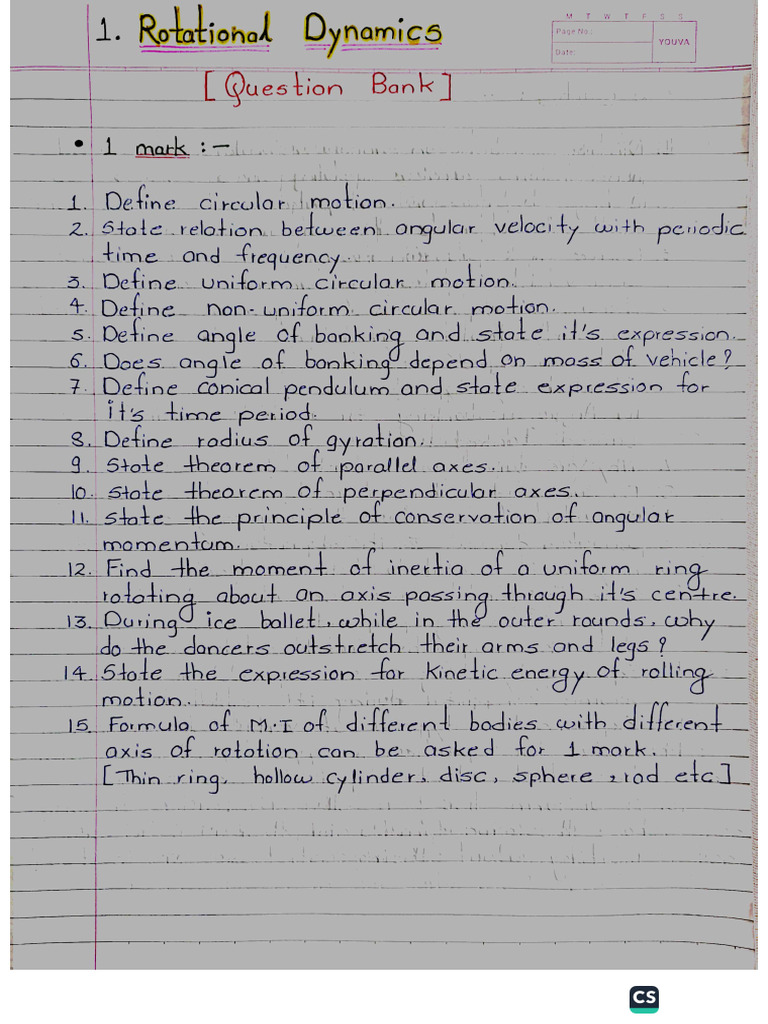 1. Rotational Dynamics
M T W T F S S
Page No.:
Date:
YOUVA
[Question Bank]
• 1 mark :-
1. Define circular motion.
2. State relation between angular velocity with periodic
time and frequency.
3. Define uniform circular motion.
4. Define non-uniform circular motion.
5. Define angle of banking and state it's expression.
6. Does angle of banking depend on mass of vehicle?
7. Define conical pendulum and state expression for
it's time period.
8. Define radius of gyration.
9. State theorem of parallel axes.
10. State theorem of perpendicular axes.
11. State the principle of conservation of angular
momentum.
12. Find the moment of inertia of a uniform ring
rotating about an axis passing through it's centre.
13. During ice ballet, while in the outer rounds, why
do the dancers outstretch their arms and legs?
14. State the expression for kinetic energy of rolling
motion.
15. Formula of M.I of different bodies with different
axis of rotation can be asked for 1 mark.
[Thin ring, hollow cylinder, disc, sphere, rod etc]
CS